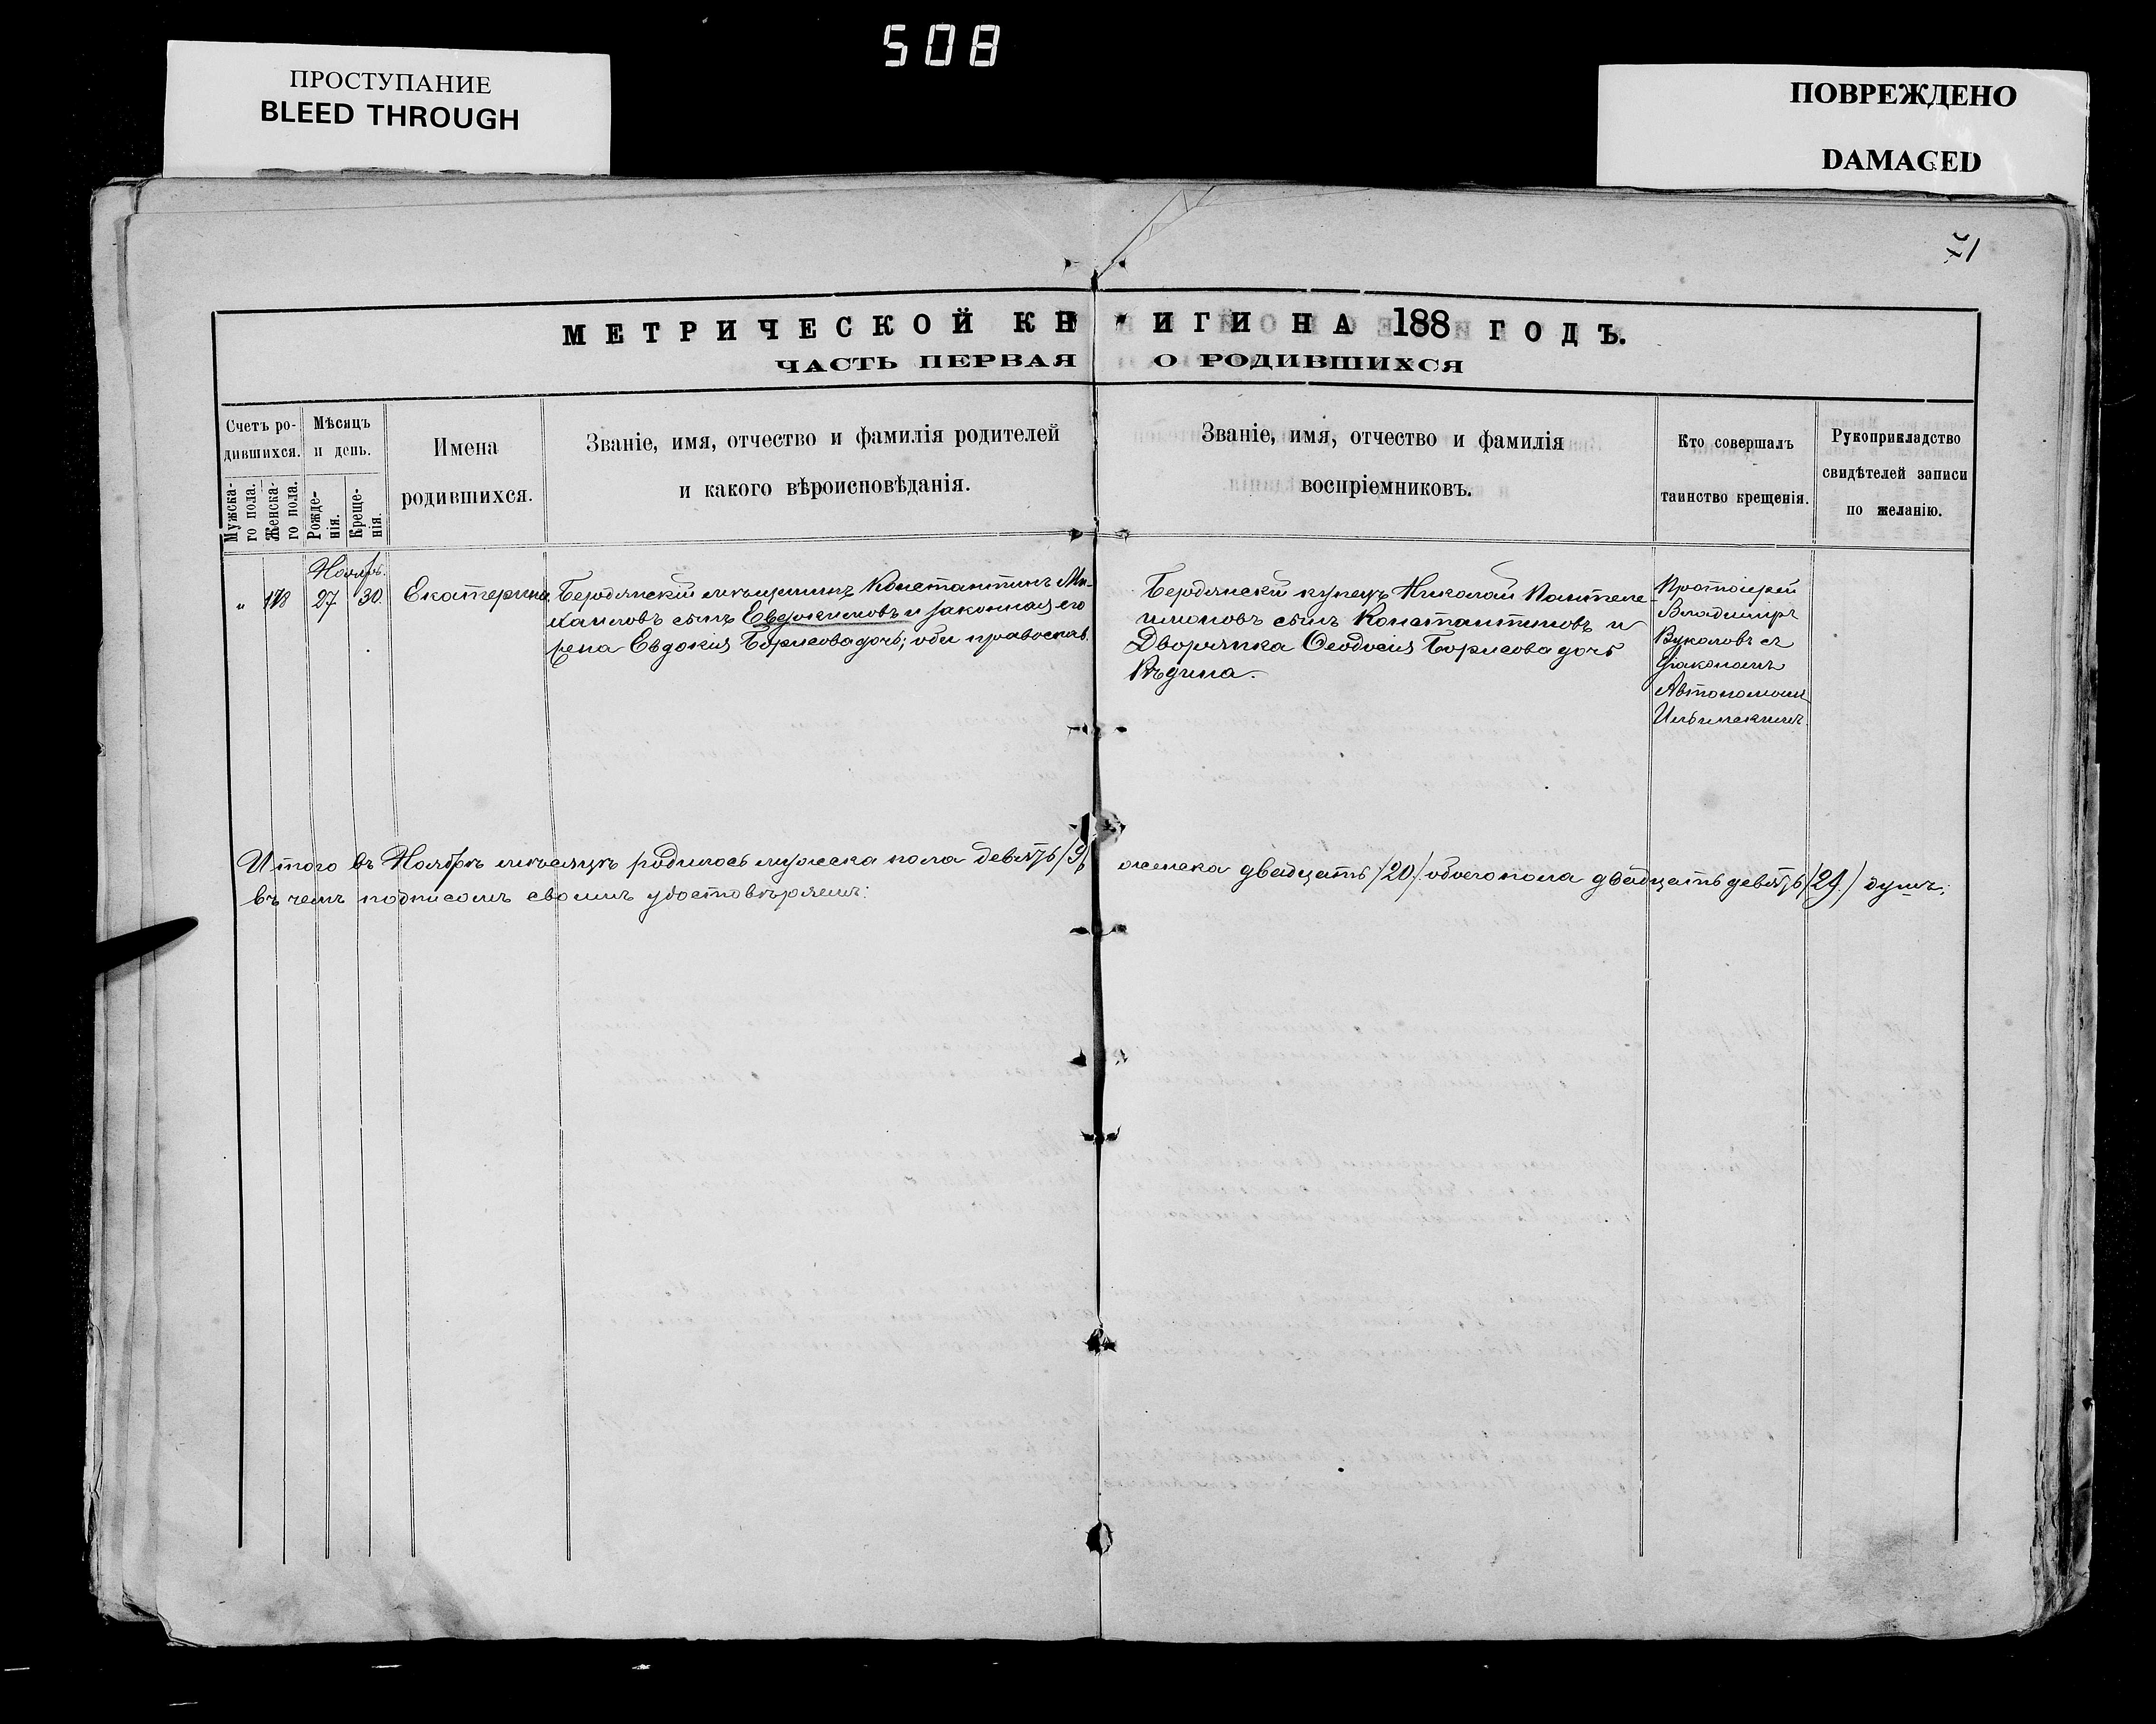 508
ПРОСТУПАНИЕ
BLEED THROUGH
ПОВРЕЖДЕНО
DAMAGED
71
МЕТРИЧЕСКОЙ КНИГИ НА 188 ГОДЪ.
ЧАСТЬ ПЕРВАЯ О РОДИВШИХСЯ
Счетъ ро-
дившихся.
Мужска-
го пола.
Женска-
го пола.
Мѣсяцъ
и день.
Рожде-
нія.
Креще-
нія.
Имена
родившихся.
Званіе, имя, отчество и фамилія родителей
и какого вѣроисповѣданія.
Званіе, имя, отчество и фамилія
воспріемниковъ.
Кто совершалъ
таинство крещенія.
Рукоприкладство
свидѣтелей записи
по желанію.
Ноябрь.
" 178 27 30. Екатерина
Бердянскій мѣщанинъ Константинъ Ми-
хаиловъ сынъ Евдокимовъ и законная его
жена Евдокія Борисова дочь; оба православ.
Бердянскій купецъ Николай Пантеле-
имоновъ сынъ Константиновъ и
Дворянка Ѳеодосія Борисова дочь
Протоіерей
Владиміръ
Вуколовъ съ
діакономъ
Автономомъ
Ильинскимъ.
Итого въ Ноябрѣ мѣсяцѣ родилось мужска пола девять /9/ женска двадцать /20/ обоего пола двадцать девять /29/ душъ;
въ чемъ подписомъ своимъ удостовѣряемъ: